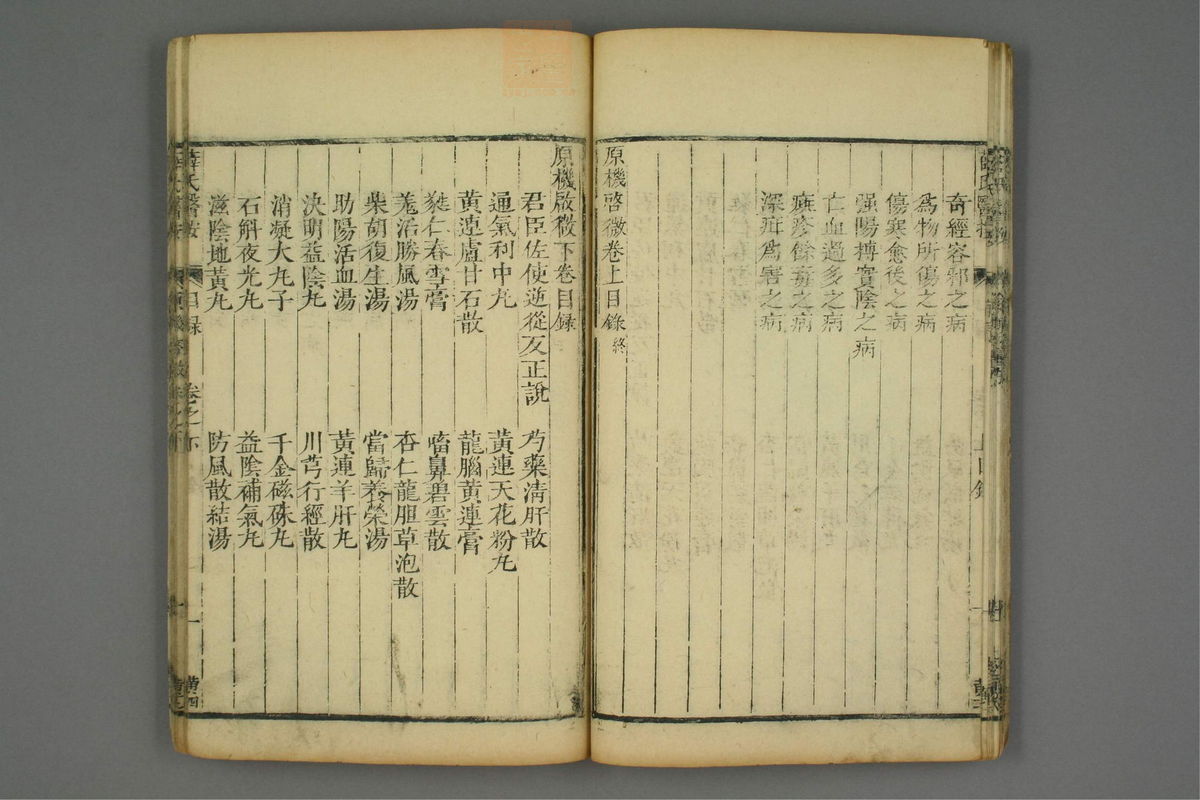 奇經容邪之病
爲物所傷之病
傷寒愈後之病
强陽摶實陰之病
亡血過多之病
癍疹餘毒之病
深疳爲害之病
原機啓微卷上目錄終
原機啟微下卷目録
君臣佐使逆從反正說 芍藥清肝散
通氣利中丸 黃連天花粉丸
黃連盧甘石散 龍腦黃連膏
蕤仁春雪膏 㗜鼻碧雲散
羗活勝風湯 杏仁龍胆草泡散
柴胡復生湯 當歸養榮湯
助陽活血湯 黃連羊肝丸
決明益陰丸 川芎行經散
消凝大丸子 千金磁硃丸
石斛夜光丸 益陰補氣丸
滋陰地黃丸 防風散結湯
薛氏醫按 目録 卷之下 一 黄四